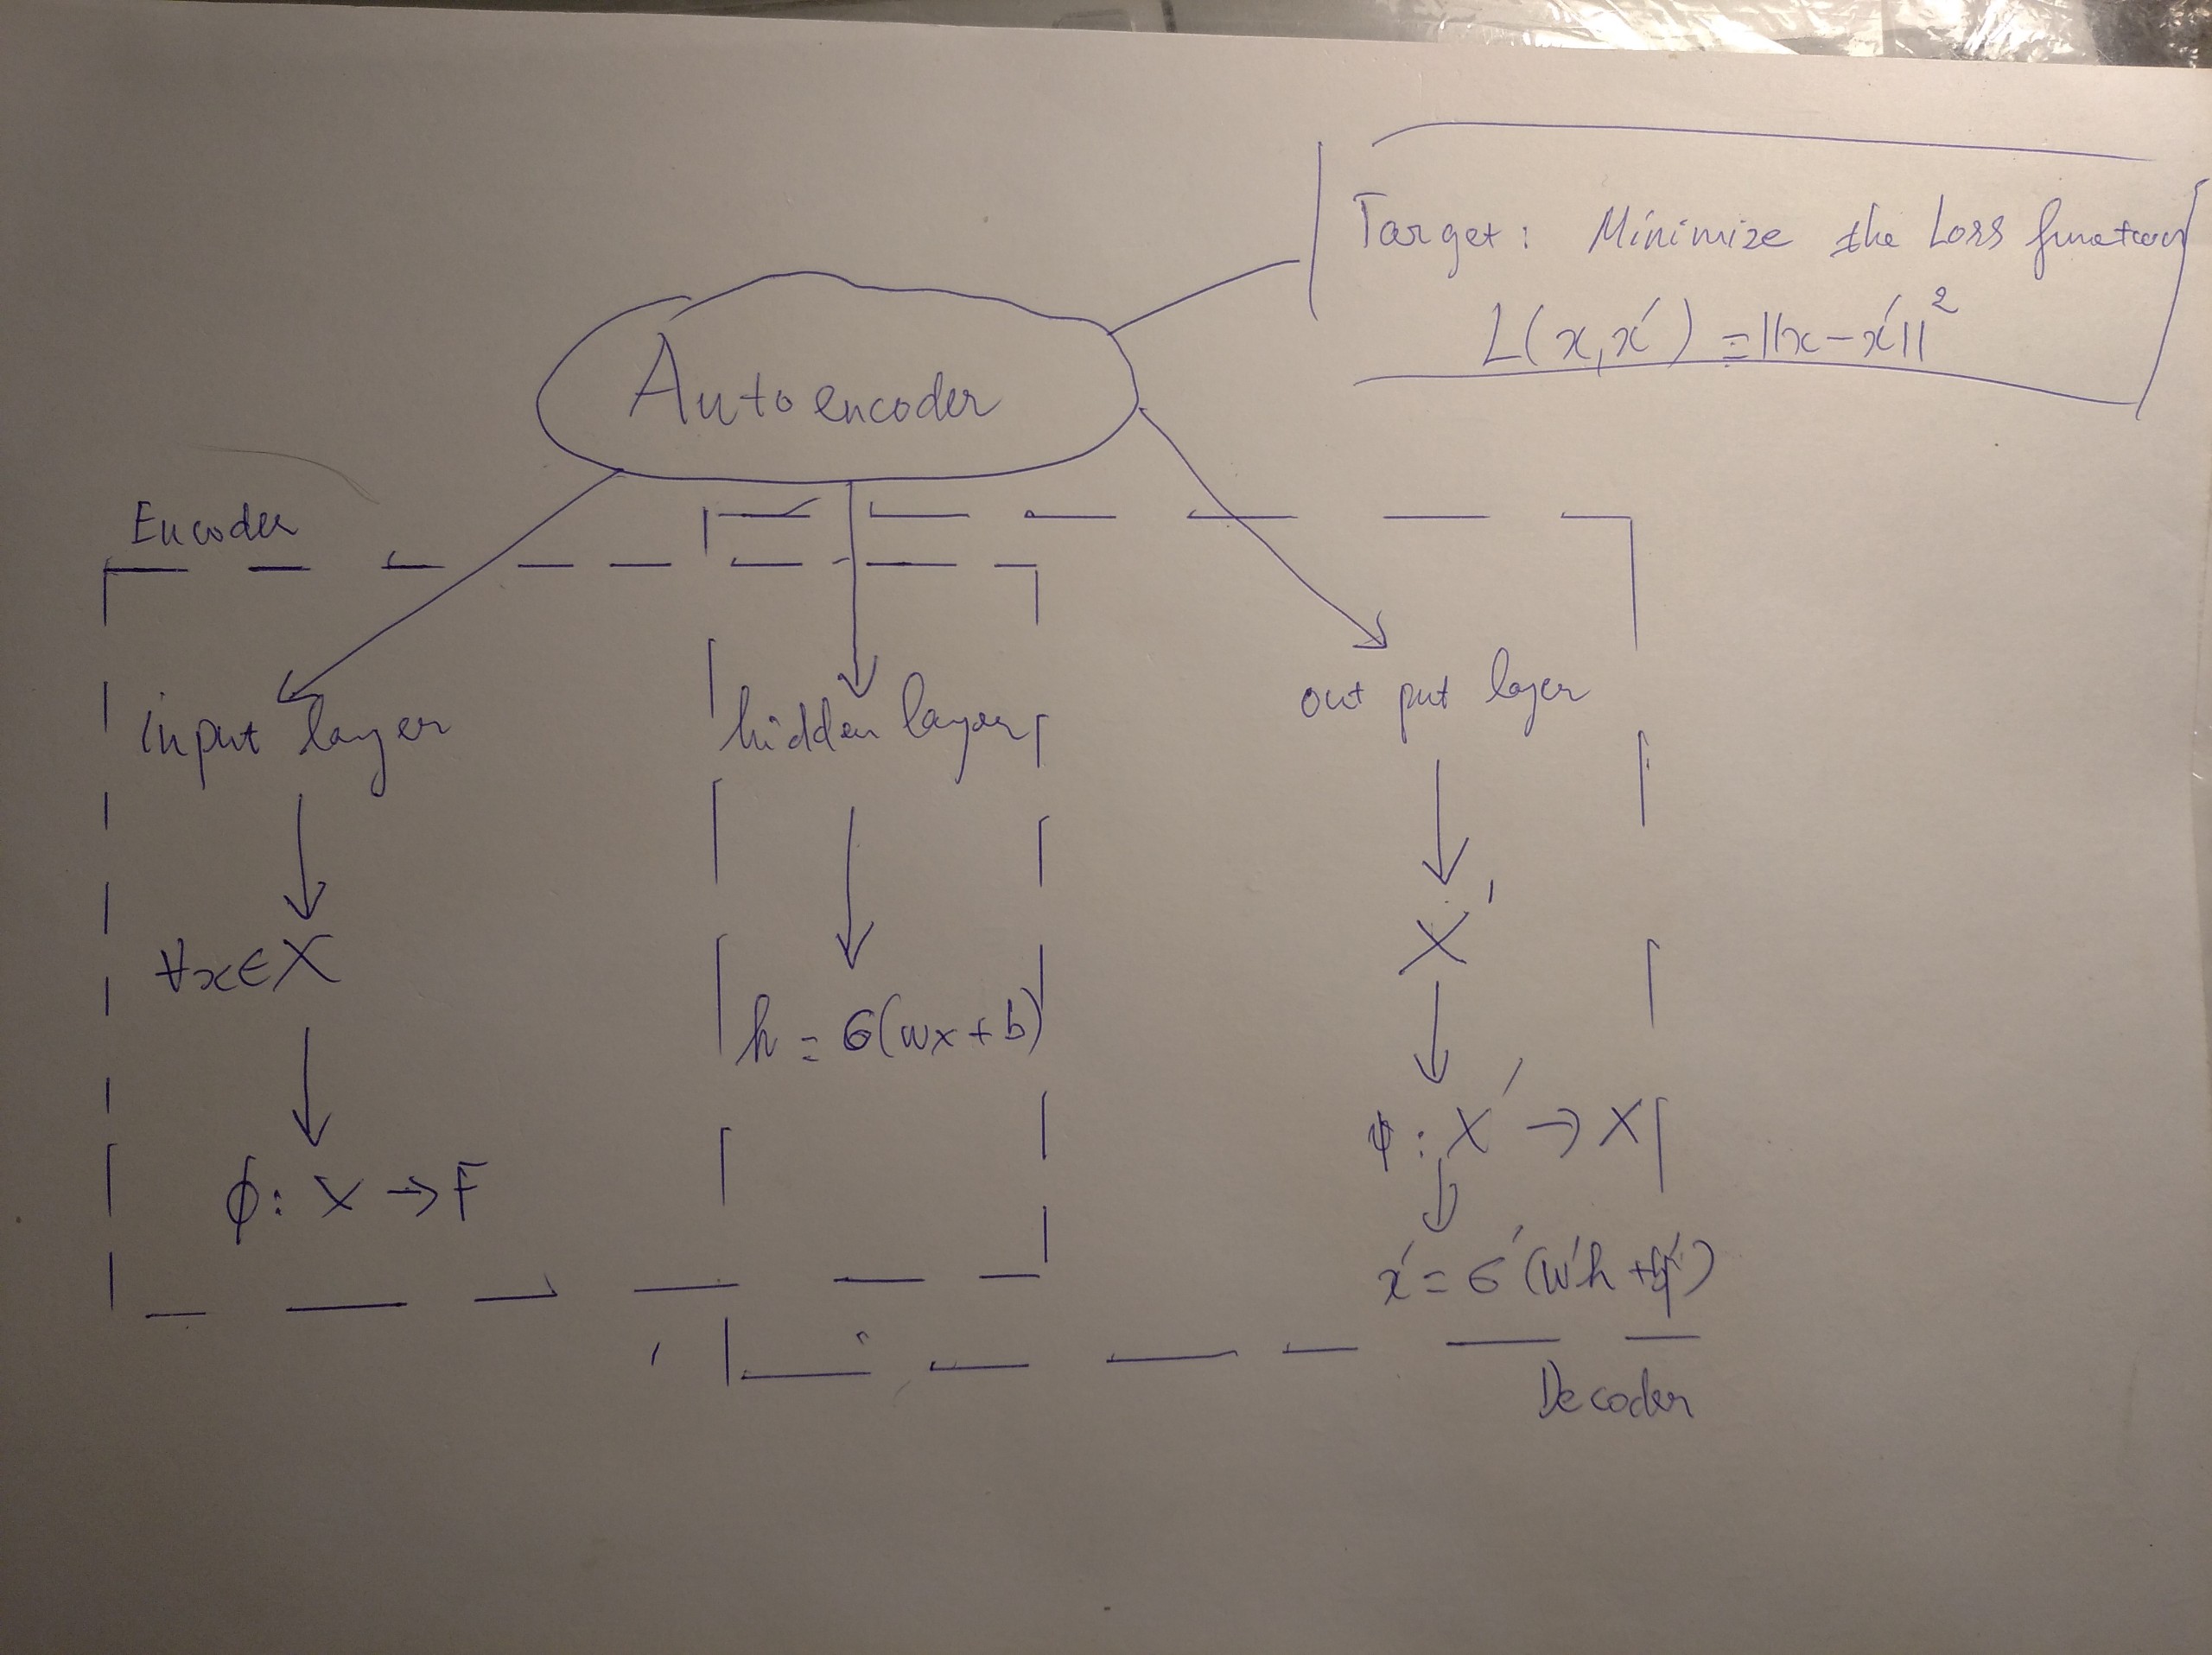 Target: Minimize the Loss function
L(x,x′) = ||x-x′||²
Autoencoder
Encoder
input layer
hidden layer
out put layer
∀x∈X
h = σ(wx+b)
X′
ϕ: X → F
ψ: X′ → X
x′ = σ′(W′h + b′)
Decoder